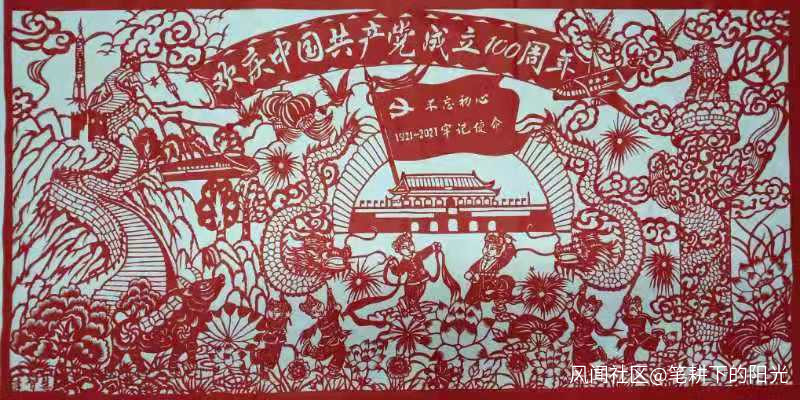 欢庆中国共产党成立100周年
不忘初心
1921-2021牢记使命
风闻社区@笔耕下的阳光